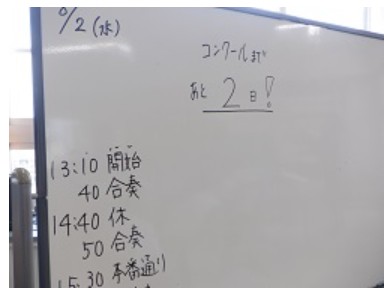 8/2 (水)
コンクールまで
あと 2日!
13:10 開始
40 合奏
14:40 休
50 合奏
15:30 本番通り